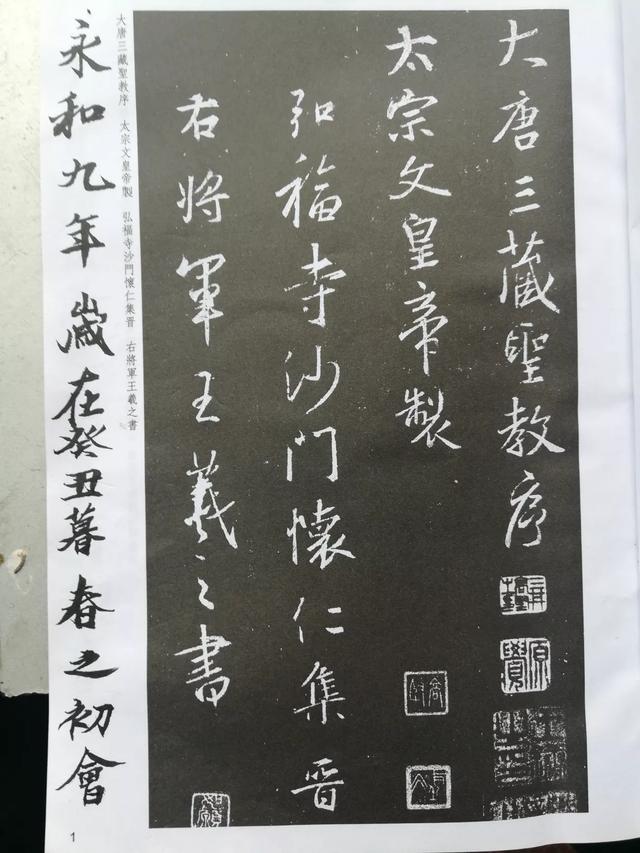 大唐三藏聖教序
太宗文皇帝製
弘福寺沙門懷仁集晉
右將軍王羲之書
大唐三藏聖教序 太宗文皇帝製 弘福寺沙門懷仁集晉 右將軍王羲之書
永和九年歲在癸丑暮春之初會
1